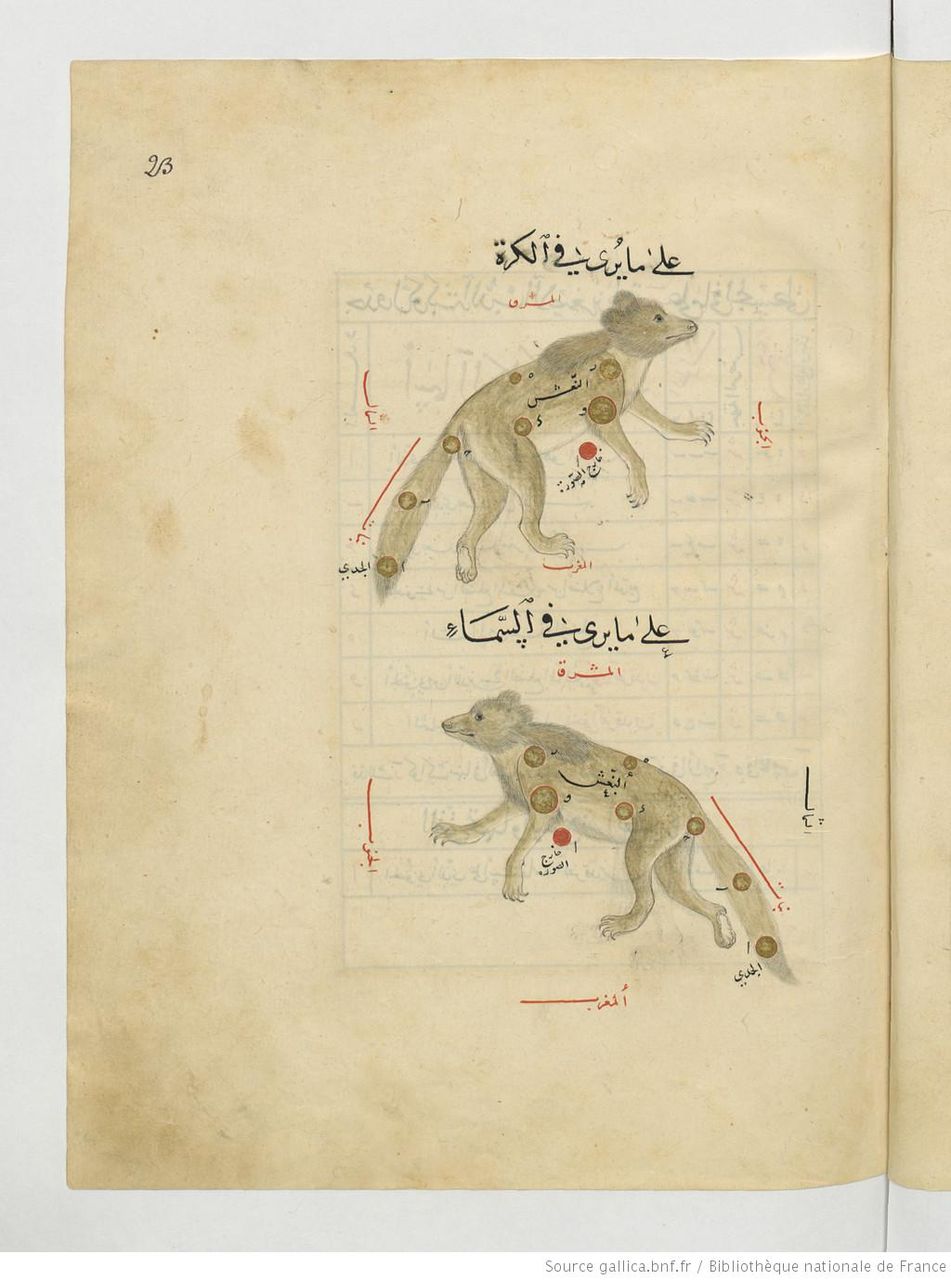 23
على ما يُرى في الكرة
المشرق
الشمال
الجنوب
النعش
خارج
الصورة
بنات
الجدي
المغرب
على ما يرى في السَّمَاءِ
المشرق
النعش
الشمال
الجنوب
خارج
الصورة
بنات
الجدي
المغرب
Source gallica.bnf.fr / Bibliothèque nationale de France